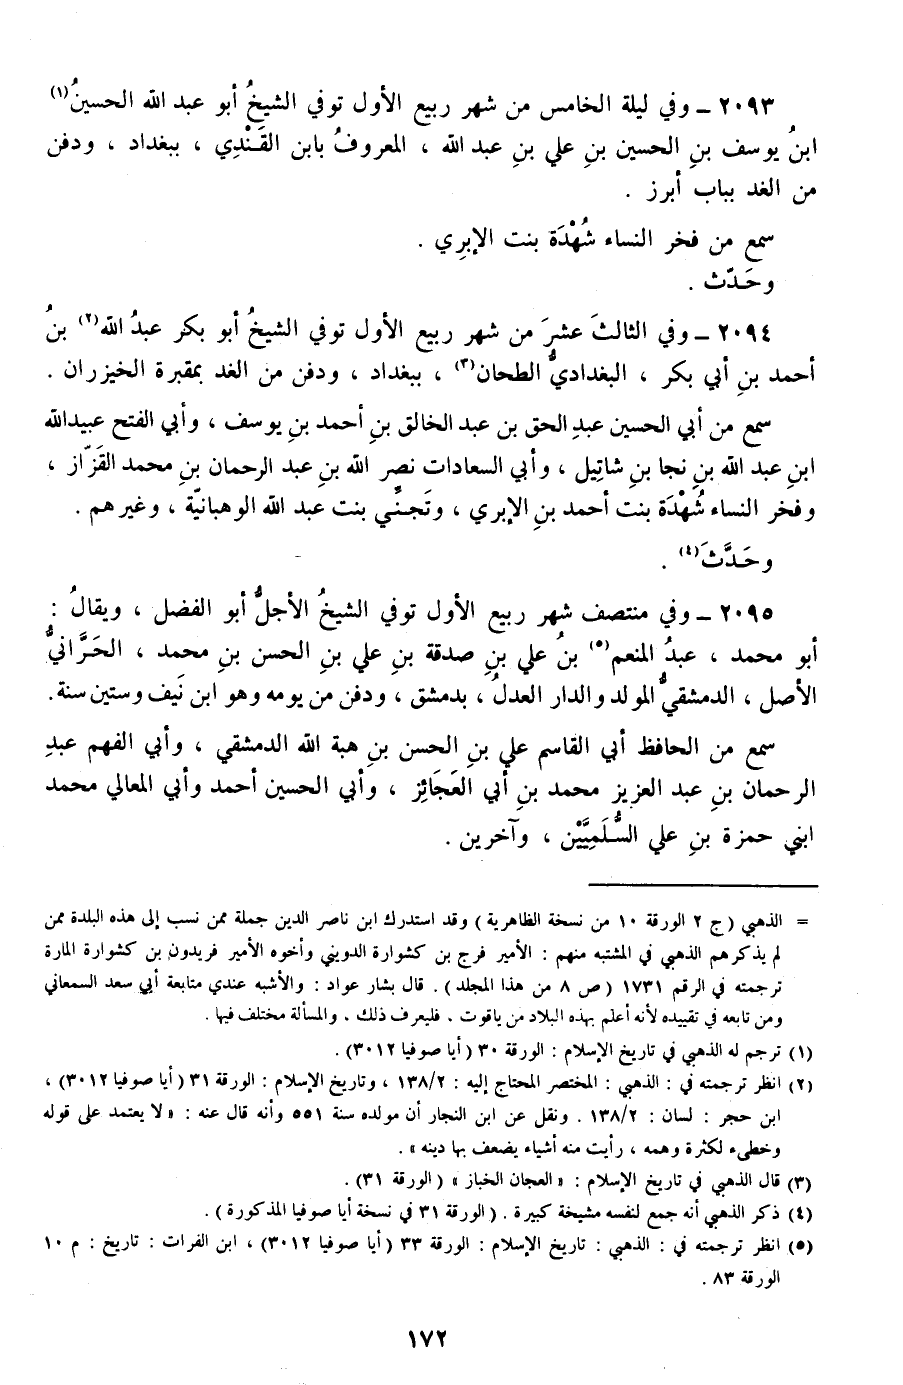 ٢٠٩٣ ـ وفي ليلة الخامس من شهر ربيع الأول توفي الشيخُ أبو عبد الله الحسينُ(١)
ابنُ يوسف بنِ الحسين بنِ علي بنِ عبد الله ، المعروفُ بابن القَنْدِي ، ببغداد ، ودفن
من الغد بباب أبرز .
سمع من فخر النساء شُهْدَة بنت الإبرِي .
وحَدّث .
٢٠٩٤ ـ وفي الثالثَ عشرَ من شهر ربيع الأول توفي الشيخُ أبو بكر عبدُ الله(٢) بنُ
أحمد بنِ أبي بكر ، البغداديُّ الطحان(٣) ، ببغداد ، ودفن من الغد بمقبرة الخيزران .
سمع من أبي الحسين عبدِ الحق بن عبد الخالق بنِ أحمد بنِ يوسف ، وأبي الفتح عبيدالله
ابنِ عبد الله بنِ نجا بنِ شاتِيل ، وأبي السعادات نصر الله بنِ عبد الرحمان بنِ محمد القَزّاز ،
وفخر النساء شُهْدَة بنت أحمد بنِ الإبري ، وتَجنِّي بنت عبد الله الوهبانيّة ، وغيرهم .
وحَدَّثَ(٤) .
٢٠٩٥ ـ وفي منتصف شهر ربيع الأول توفي الشيخُ الأجلُّ أبو الفضل ، ويقالُ :
أبو محمد ، عبدُ المنعم(٥) بنُ علي بنِ صدقة بنِ علي بنِ الحسن بنِ محمد ، الحَرَّانيُّ
الأصل ، الدمشقيُّ المولد والدار العدلُ ، بدمشق ، ودفن من يومه وهو ابن نَيف وستين سنة.
سمع من الحافظ أبي القاسم علي بنِ الحسن بنِ هبة الله الدمشقي ، وأبي الفهم عبدِ
الرحمان بنِ عبد العزيز محمد بنِ أبي العَجَائِز ، وأبي الحسين أحمد وأبي المعالي محمد
ابني حمزة بنِ علي السُّلَمِيَّيْن ، وآخرين .
= الذهبي ( ج ٢ الورقة ١٠ من نسخة الظاهرية ) وقد استدرك ابن ناصر الدين جملة ممن نسب إلى هذه البلدة ممن
لم يذكرهم الذهبي في المشتبه منهم : الأمير فرج بن كشوارة الدويني وأخوه الأمير فريدون بن كشوارة المارة
ترجمته في الرقم ١٧٣١ ( ص ٨ من هذا المجلد ) . قال بشار عواد : والأشبه عندي متابعة أبي سعد السمعاني
ومن تابعه في تقييده لأنه أعلم بهذه البلاد من ياقوت ، فليعرف ذلك ، والمسألة مختلف فيها .
(١) ترجم له الذهبي في تاريخ الإسلام : الورقة ٣٠ ( أيا صوفيا ٣٠١٢) .
(٢) انظر ترجمته في : الذهبي : المختصر المحتاج إليه : ١٣٨/٢ ، وتاريخ الإسلام : الورقة ٣١ ( أيا صوفيا ٣٠١٢) ،
ابن حجر : لسان : ١٣٨/٢ . ونقل عن ابن النجار أن مولده سنة ٥٥١ وأنه قال عنه : « لا يعتمد على قوله
وخطيء لكثرة وهمه ، رأيت منه أشياء يضعف بها دينه » .
(٣) قال الذهبي في تاريخ الإسلام : « العجان الخباز » ( الورقة ٣١ ) .
(٤) ذكر الذهبي أنه جمع لنفسه مشيخة كبيرة . ( الورقة ٣١ في نسخة أيا صوفيا المذكورة ) .
(٥) انظر ترجمته في : الذهبي : تاريخ الإسلام : الورقة ٣٣ ( أيا صوفيا ٣٠١٢) ، ابن الفرات : تاريخ : م ١٠
الورقة ٨٣ .
١٧٢